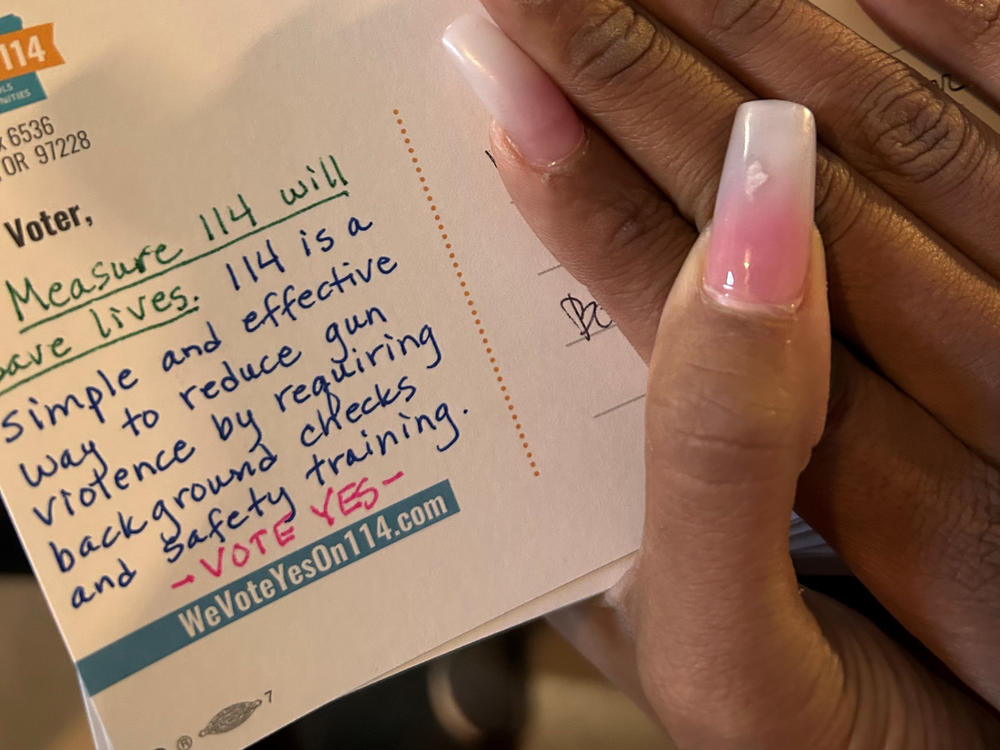 114
x 6536
OR 97228
Voter,
Measure 114 will
save lives. 114 is a
simple and effective
way to reduce gun
violence by requiring
background checks
and safety training.
- VOTE YES -
WeVoteYesOn114.com
® 7